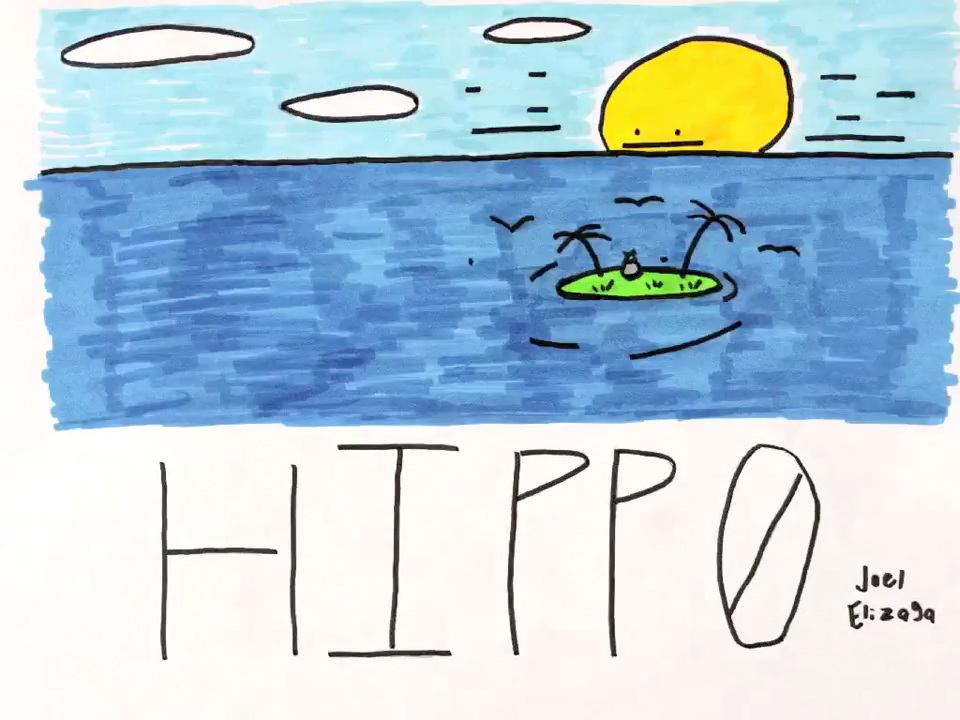 HIPPO
Joel
Elizaga